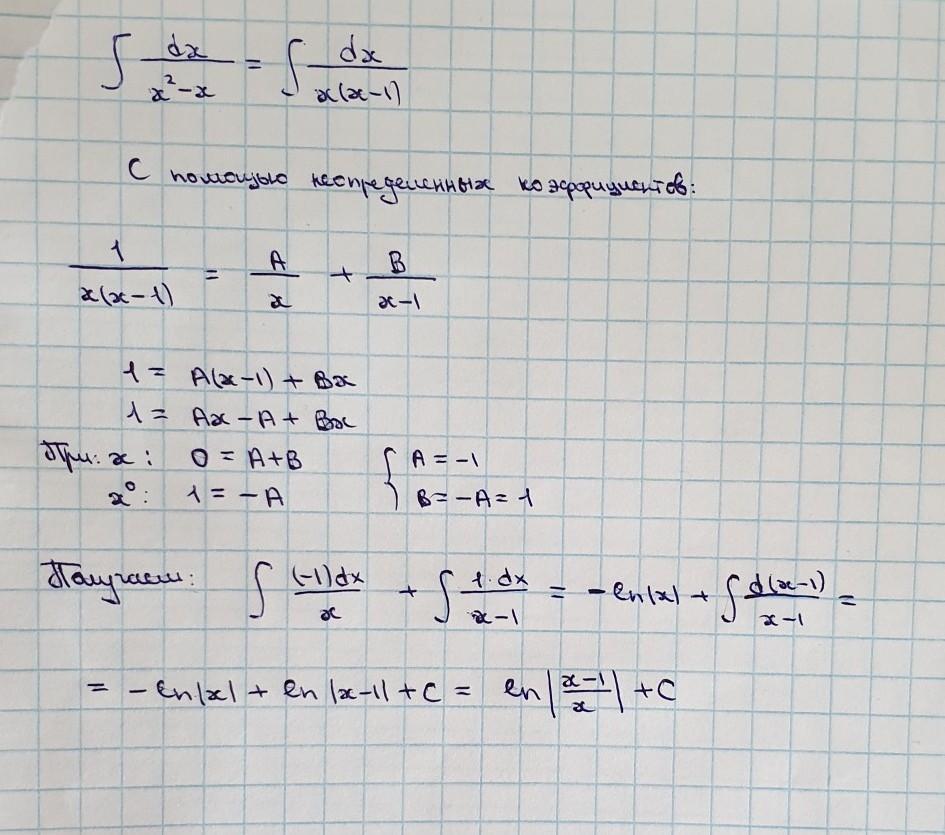 ∫ dx/(x²-x) = ∫ dx/(x(x-1))
С помощью неопределенных коэффициентов:
1/(x(x-1)) = A/x + B/(x-1)
1 = A(x-1) + Bx
1 = Ax - A + Bx
При: x: 0 = A+B { A = -1
x⁰: 1 = -A B = -A = 1
Получаем: ∫ (-1)dx/x + ∫ 1·dx/(x-1) = -ln|x| + ∫ d(x-1)/(x-1) =
= -ln|x| + ln|x-1| + C = ln|(x-1)/x| + C